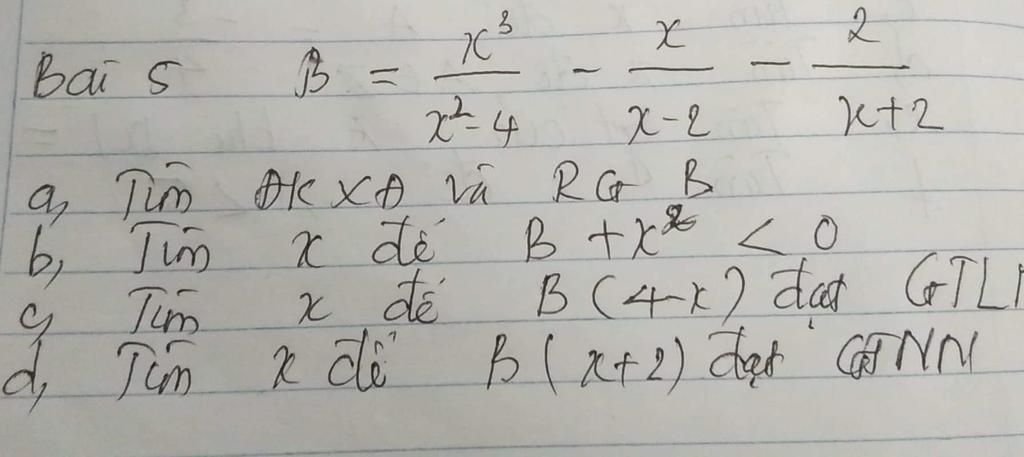 Bài 5 B = x³/(x²-4) - x/(x-2) - 2/(x+2)
a, Tìm ĐKXĐ và RG B
b, Tìm x để B + x² < 0
c, Tìm x để B(4-x) đạt GTL
d, Tìm x để B(x+2) đạt GTNN